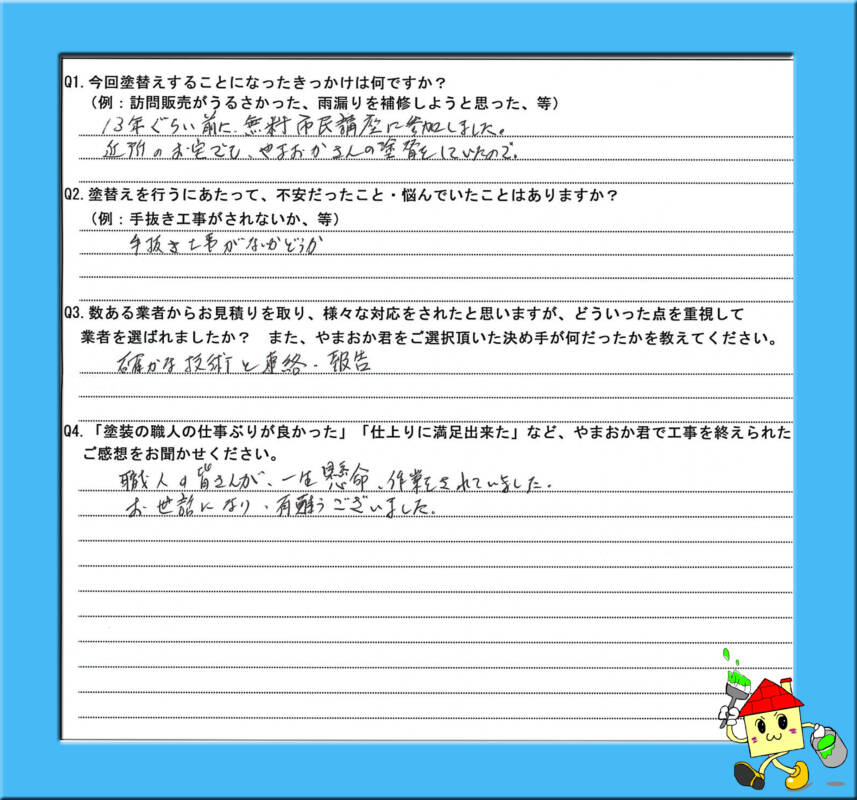 Q1. 今回塗替えすることになったきっかけは何ですか？
（例：訪問販売がうるさかった、雨漏りを補修しようと思った、等）
13年ぐらい前に、無料市民講座に参加しました。
近所のお宅でも、やまおかさんの塗替をしていたので。
Q2. 塗替えを行うにあたって、不安だったこと・悩んでいたことはありますか？
（例：手抜き工事がされないか、等）
手抜き工事がないかどうか
Q3. 数ある業者からお見積りを取り、様々な対応をされたと思いますが、どういった点を重視して
業者を選ばれましたか？　また、やまおか君をご選択頂いた決め手が何だったかを教えてください。
確かな技術と連絡・報告
Q4. 「塗装の職人の仕事ぶりが良かった」「仕上りに満足出来た」など、やまおか君で工事を終えられた
ご感想をお聞かせください。
職人の皆さんが、一生懸命、作業をされていました。
お世話になり、有難うございました。